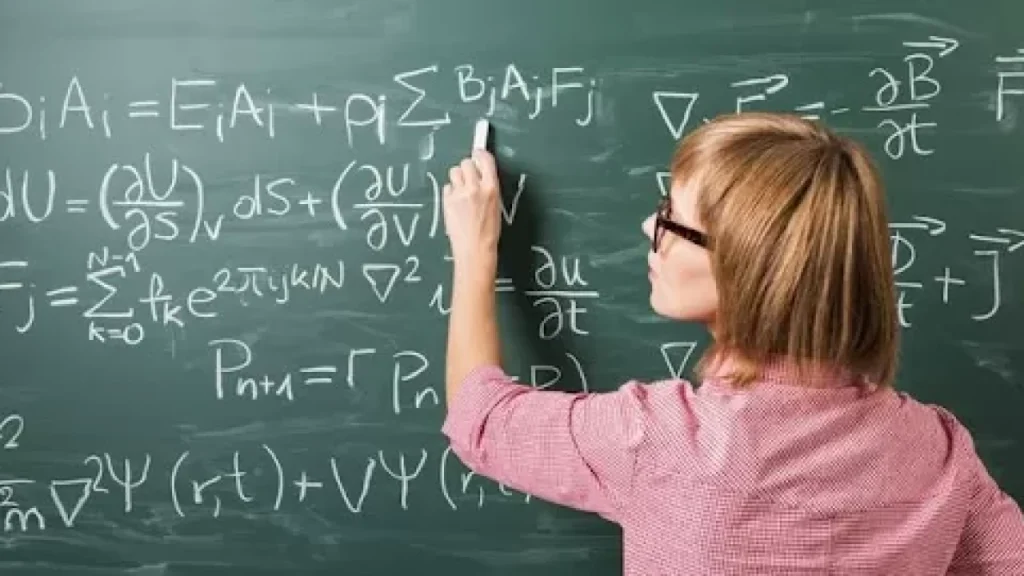 ρᵢAᵢ = EᵢAᵢ + ρᵢ ∑ⱼ BⱼAⱼFⱼ
∇ = ∂B⃗/∂t
dU = (∂U/∂S)ᵥ dS + (∂U/∂V) V
Fⱼ = ∑ₖ₌₀ᴺ⁻¹ fₖ e²πijk/N
∇² u = ∂u/∂t
+ J⃗
Pₙ₊₁ = r Pₙ
∇
²/2m ∇²Ψ(r,t) + VΨ(r,t